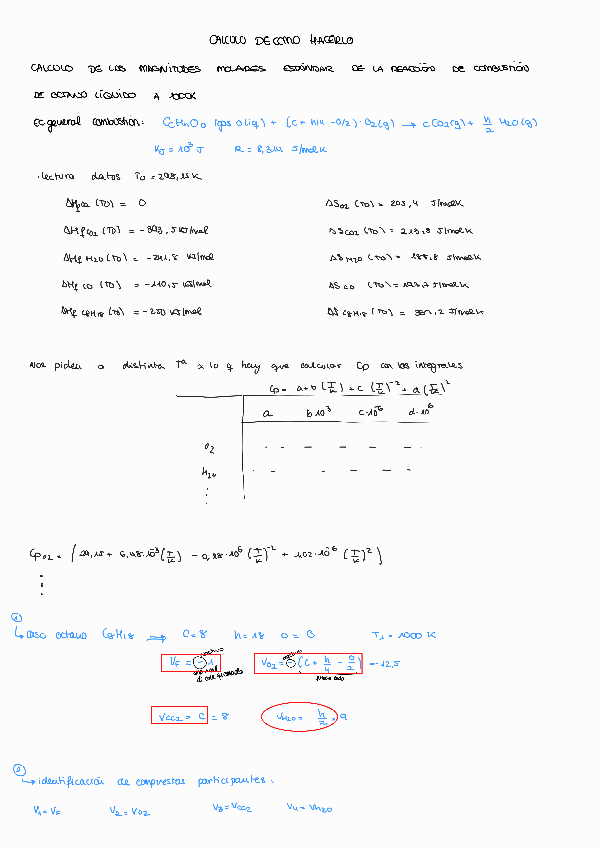 CALCULO DE COMO HACERLO
CALCULO DE LAS MAGNITUDES MOLARES ESTÁNDAR DE LA REACCIÓN DE COMBUSTIÓN
DE OCTANO LÍQUIDO A 1000K
Ec general combustión: CcHhOo (gas o liq) + (c + h/4 - o/2) · O2(g) → c CO2(g) + h/2 H2O(g)
KJ = 10³ J R = 8,314 J/molK
· lectura datos T0 = 298,15 K
ΔHfO2 (T0) = 0 ΔSO2 (T0) = 205,4 J/molK
ΔHfCO2 (T0) = -393,5 KJ/mol ΔSCO2 (T0) = 213,8 J/molK
ΔHfH2O (T0) = -241,8 KJ/mol ΔSH2O (T0) = 188,8 J/molK
ΔHfCO (T0) = -110,5 KJ/mol ΔSCO (T0) = 197,7 J/molK
ΔHfC8H18 (T0) = -250 KJ/mol ΔSC8H18 (T0) = 361,2 J/molK
Nos piden a distinta Tª x lo q hay que calcular Cp con las integrales
Cp = a+b (T/K) + c (T/K)⁻² + d (T/K)²
a b·10³ c·10⁻⁶ d·10⁶
O2 - - - - -
H2O - - - - -
CpO2 = [29,15 + 6,48·10⁻³ (T/K) - 0,18·10⁶ (T/K)⁻² + 1,02·10⁻⁶ (T/K)²]
①
↳ caso octano C8H18 ⟹ C = 8 h = 18 o = 0 T1 = 1000 K
VF = -1 VO2 = -(C + h/4 - o/2) = -12,5
VCO2 = C = 8 VH2O = h/2 = 9
②
↳ identificación de compuestos participantes:
V1 = VF V2 = VO2 V3 = VCO2 V4 = VH2O